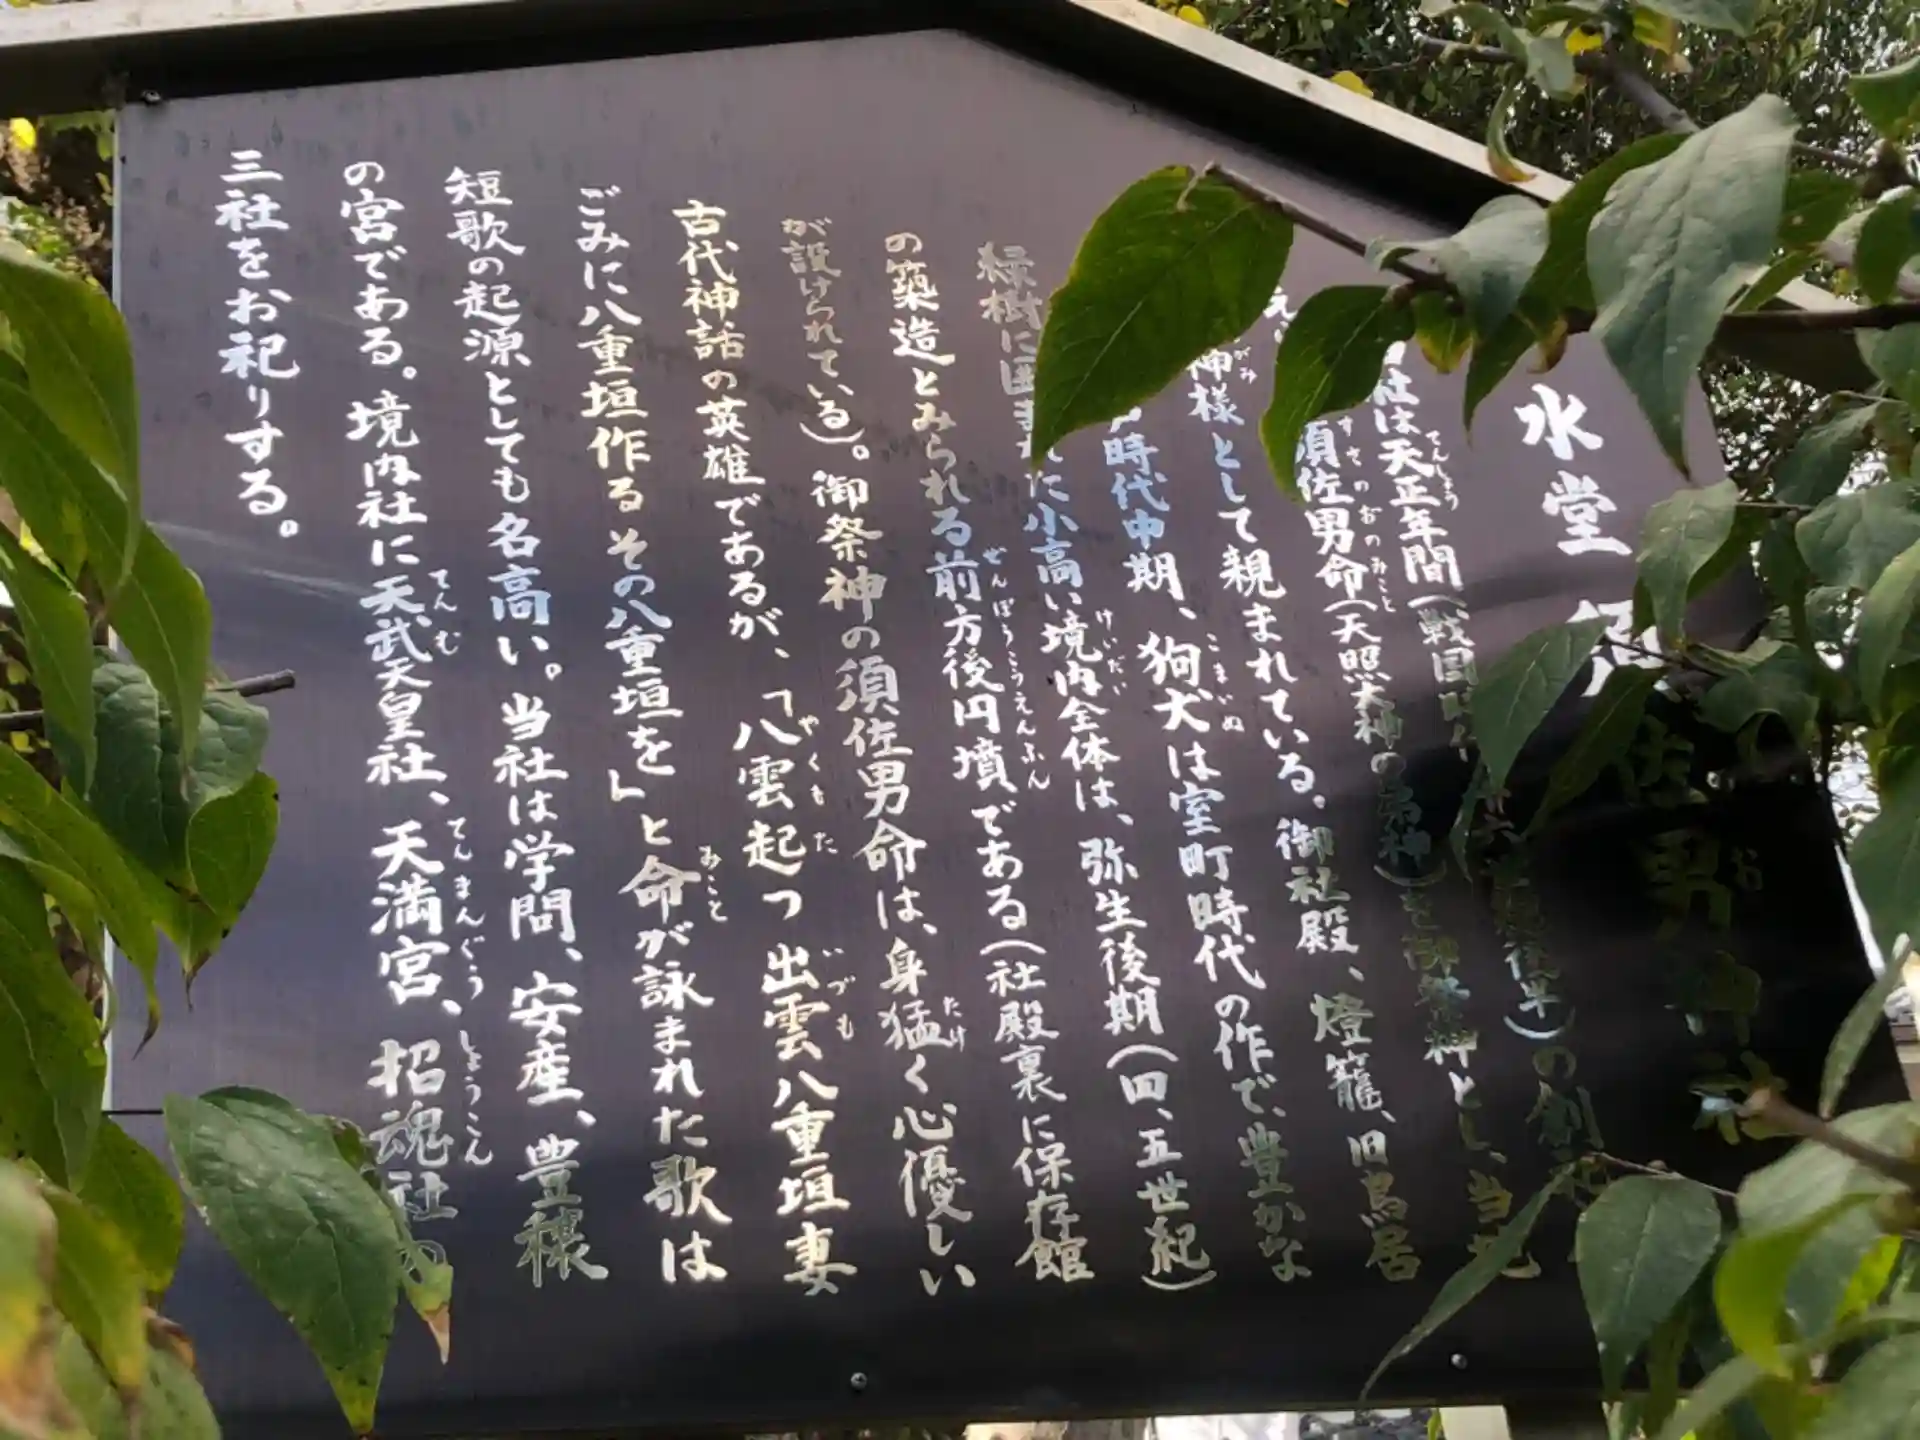 水堂須佐男神社
社は天正年間(戦国時 十六世紀後半)の創
須佐男命(天照大神の弟神)を御祭神とし、当地
神様として親まれている。御社殿、燈籠、旧鳥居
時代中期、狗犬は室町時代の作で、豊かな
緑樹に囲まれた小高い境内全体は、弥生後期(四、五世紀)
の築造とみられる前方後円墳である(社殿裏に保存館
が設けられている)。御祭神の須佐男命は、身猛く心優しい
古代神話の英雄であるが、「八雲起つ出雲八重垣妻
ごみに八重垣作るその八重垣を」と命が詠まれた歌は
短歌の起源としても名高い。当社は学問、安産、豊穣
の宮である。境内社に天武天皇社、天満宮、招魂社の
三社をお祀りする。